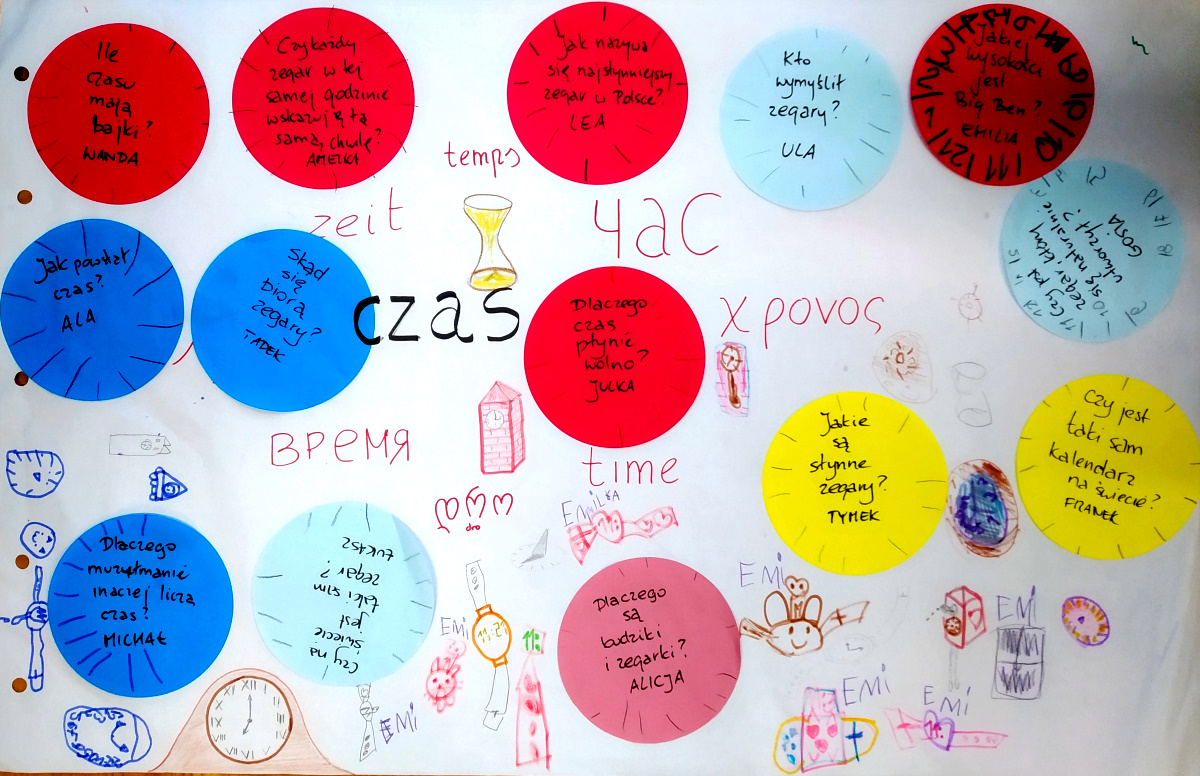 Ile
czasu
mają
bajki?
WANDA
Czy każdy
zegar w tej
samej godzinie
wskazuję tą
samą chwilę?
AMELKA
Jak nazywa
się najsłynniejszy
zegar w Polsce?
LEA
Kto
wymyślił
zegary?
ULA
Jakiej
wysokości
jest
Big Ben?
EMILIA
temps
zeit
час
Czy jest
zegar który
się naturalnie
utworzył?
GOSIA
Jak powstał
czas?
ALA
Skąd
się
biorą
zegary?
TADEK
czas
Dlaczego
czas
płynie
wolno?
JULKA
χρονος
время
time
Jakie
są
słynne
zegary?
TYMEK
Czy jest
taki sam
kalendarz
na świecie?
FRANEK
დრო
dro
EMILKA
Dlaczego
muzułmanie
inaczej liczą
czas?
MICHAŁ
Czy na
świecie
jest
taki sam
zegar?
ŁUKASZ
Dlaczego
są
budziki
i zegarki?
ALICJA
EMI
EMI
EMI
11:21
11:
EMI
EMI
EMI
XII